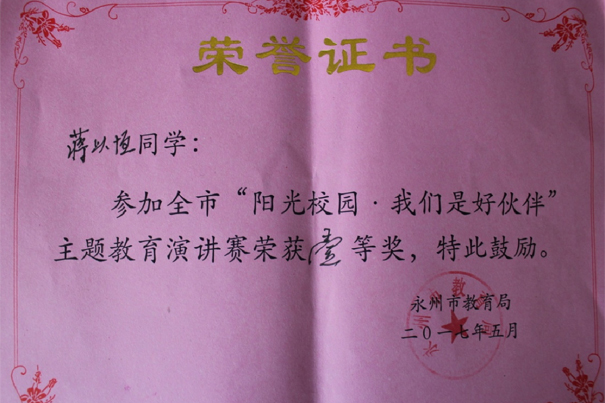 荣誉证书
蒋以恒同学：
参加全市“阳光校园·我们是好伙伴”
主题教育演讲赛荣获壹等奖，特此鼓励。
永州市教育局
二〇一七年五月